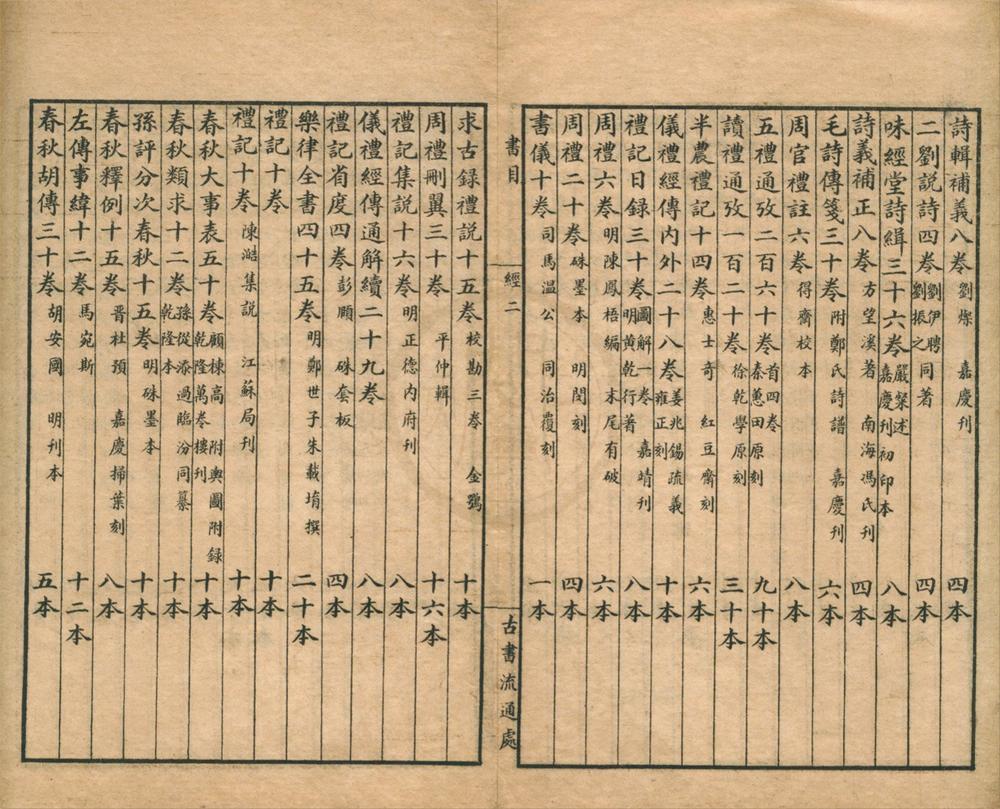 詩輯補義八卷 劉燦 嘉慶刊 四本
二劉説詩四卷 劉伊聘 劉振之 同著 四本
味經堂詩緝三十六卷 嚴粲述 嘉慶刊初印本 八本
詩義補正八卷 方望溪著 南海馮氏刊 四本
毛詩傳箋三十卷 附鄭氏詩譜 嘉慶刊 六本
周官禮註六卷 得齋校本 八本
五禮通攷二百六十卷 首四卷 秦蕙田原刻 九十本
讀禮通攷一百二十卷 徐乾學原刻 三十本
半農禮記十四卷 惠士奇 紅豆齋刻 六本
儀禮經傳内外二十八卷 姜兆錫疏義 雍正刻 十本
禮記日録三十卷 圖解一卷 明黄乾行著 嘉靖刊 八本
周禮六卷 明陳鳳梧編 末尾有破 六本
周禮二十卷 硃墨本 明閔刻 四本
書儀十卷 司馬温公 同治覆刻 一本
書目 經二 古書流通處
求古録禮説十五卷 校勘三卷 金鶚 十本
周禮刪翼三十卷 平仲輯 十六本
禮記集説十六卷 明正德内府刊 八本
儀禮經傳通解續二十九卷 八本
禮記省度四卷 彭頤 硃套板 四本
樂律全書四十五卷 明鄭世子朱載堉撰 二十本
禮記十卷 十本
禮記十卷 陳澔集説 江蘇局刊 十本
春秋大事表五十卷 顧棟高 附輿圖附録 乾隆萬卷樓刊 十本
春秋類求十二卷 孫從添過臨汾同纂 乾隆本 十本
孫評分次春秋十五卷 明硃墨本 十本
春秋釋例十五卷 晋杜預 嘉慶掃葉刻 八本
左傳事緯十二卷 馬宛斯 十二本
春秋胡傳三十卷 胡安國 明刊本 五本